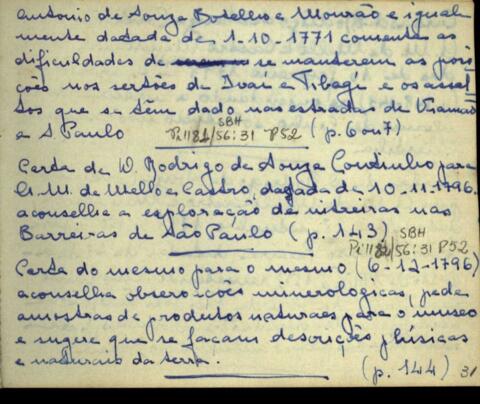 Antonio de Souza Botelho e Mourão e igual-
mente datada de 1-10-1771 comenta as
dificuldades de se manterem as posi
ções nos sertões de Ivaí e Tibagí e os assal
tos que se têm dado nas estradas de Viamão
e S. Paulo (p. 6 ou 7)
SBH
Pi 182/56:31 P52
Carta de D. Rodrigo de Souza Coutinho para
A. M. de Mello e Castro, datada de 10-11-1796
aconselha a exploração de nitreiras nas
Barreiras de São Paulo (p. 143)
SBH
Pi 182/56:31 P52
Carta do mesmo para o mesmo (6-12-1796)
aconselha observações minerologicas, pede
amostras de produtos naturaes para o museo
e sugere que se façam descrições phisicas
e naturais da terra.
(p. 144) 31